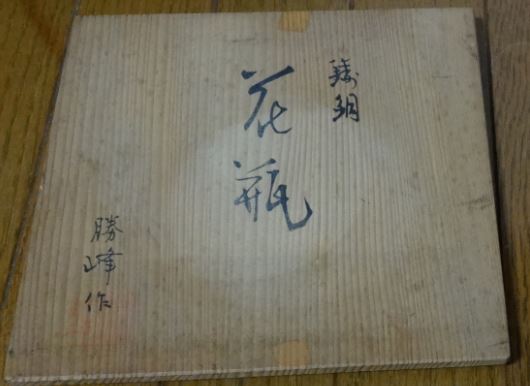 鋳銅
花瓶
勝峰作